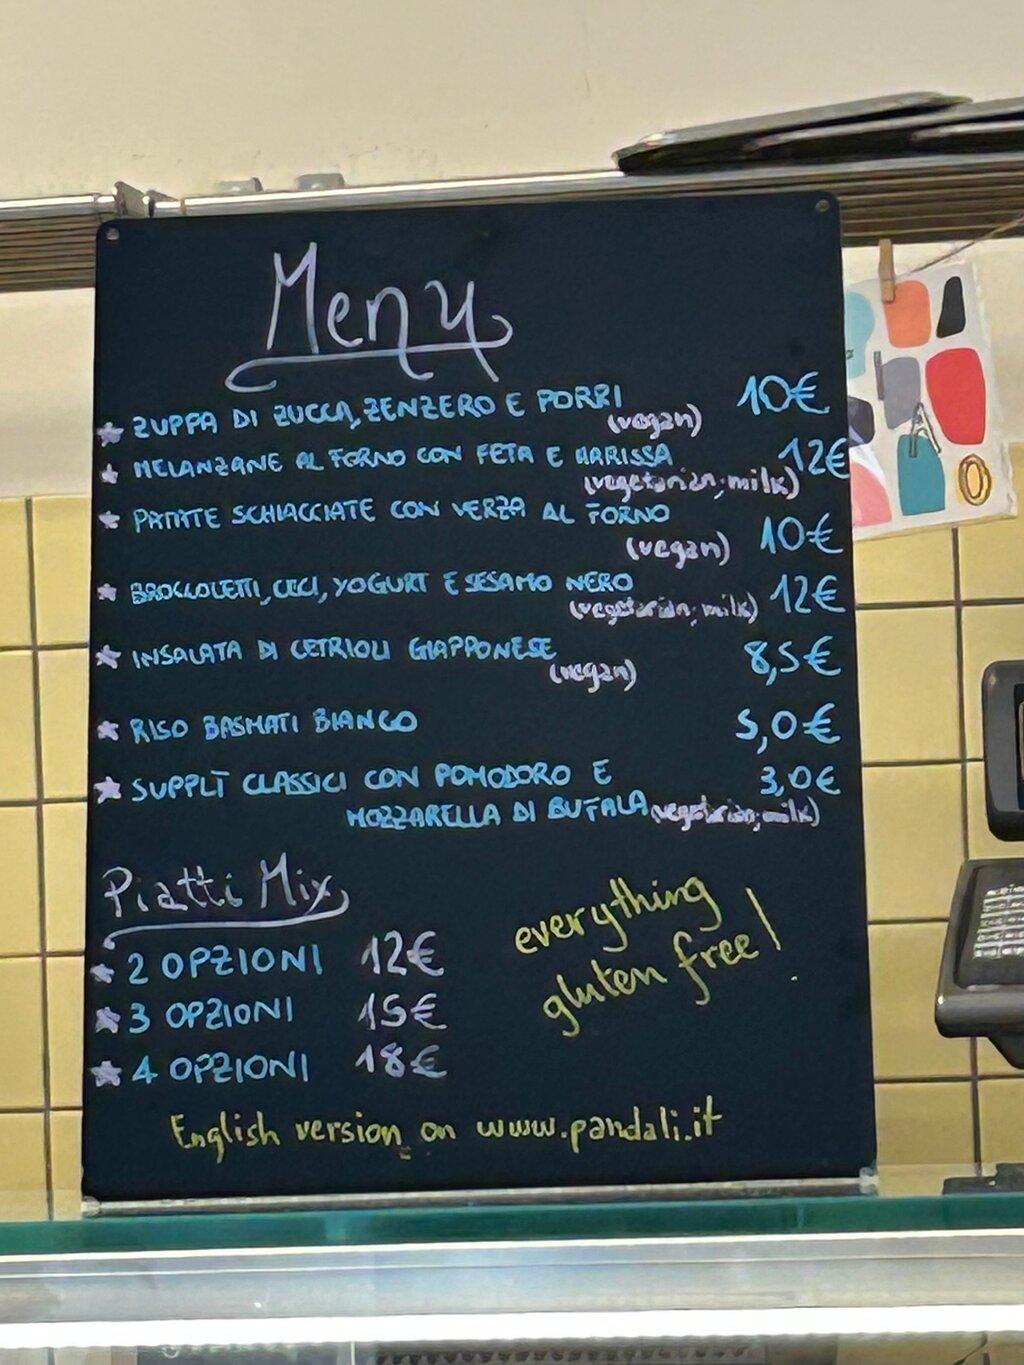 Menu
ZUPPA DI ZUCCA, ZENZERO E PORRI 10€
(vegan)
MELANZANE AL FORNO CON FETA E HARISSA 12€
(vegetarian, milk)
PATATE SCHIACCIATE CON VERZA AL FORNO
(vegan) 10€
BROCCOLETTI, CECI, YOGURT E SESAMO NERO 12€
(vegetarian, milk)
INSALATA DI CETRIOLI GIAPPONESE 8,5€
(vegan)
RISO BASMATI BIANCO 5,0€
SUPPLÌ CLASSICI CON POMODORO E 3,0€
MOZZARELLA DI BUFALA (vegetarian, milk)
Piatti Mix
2 OPZIONI 12€
3 OPZIONI 15€
4 OPZIONI 18€
everything
gluten free!
English version on www.pandali.it